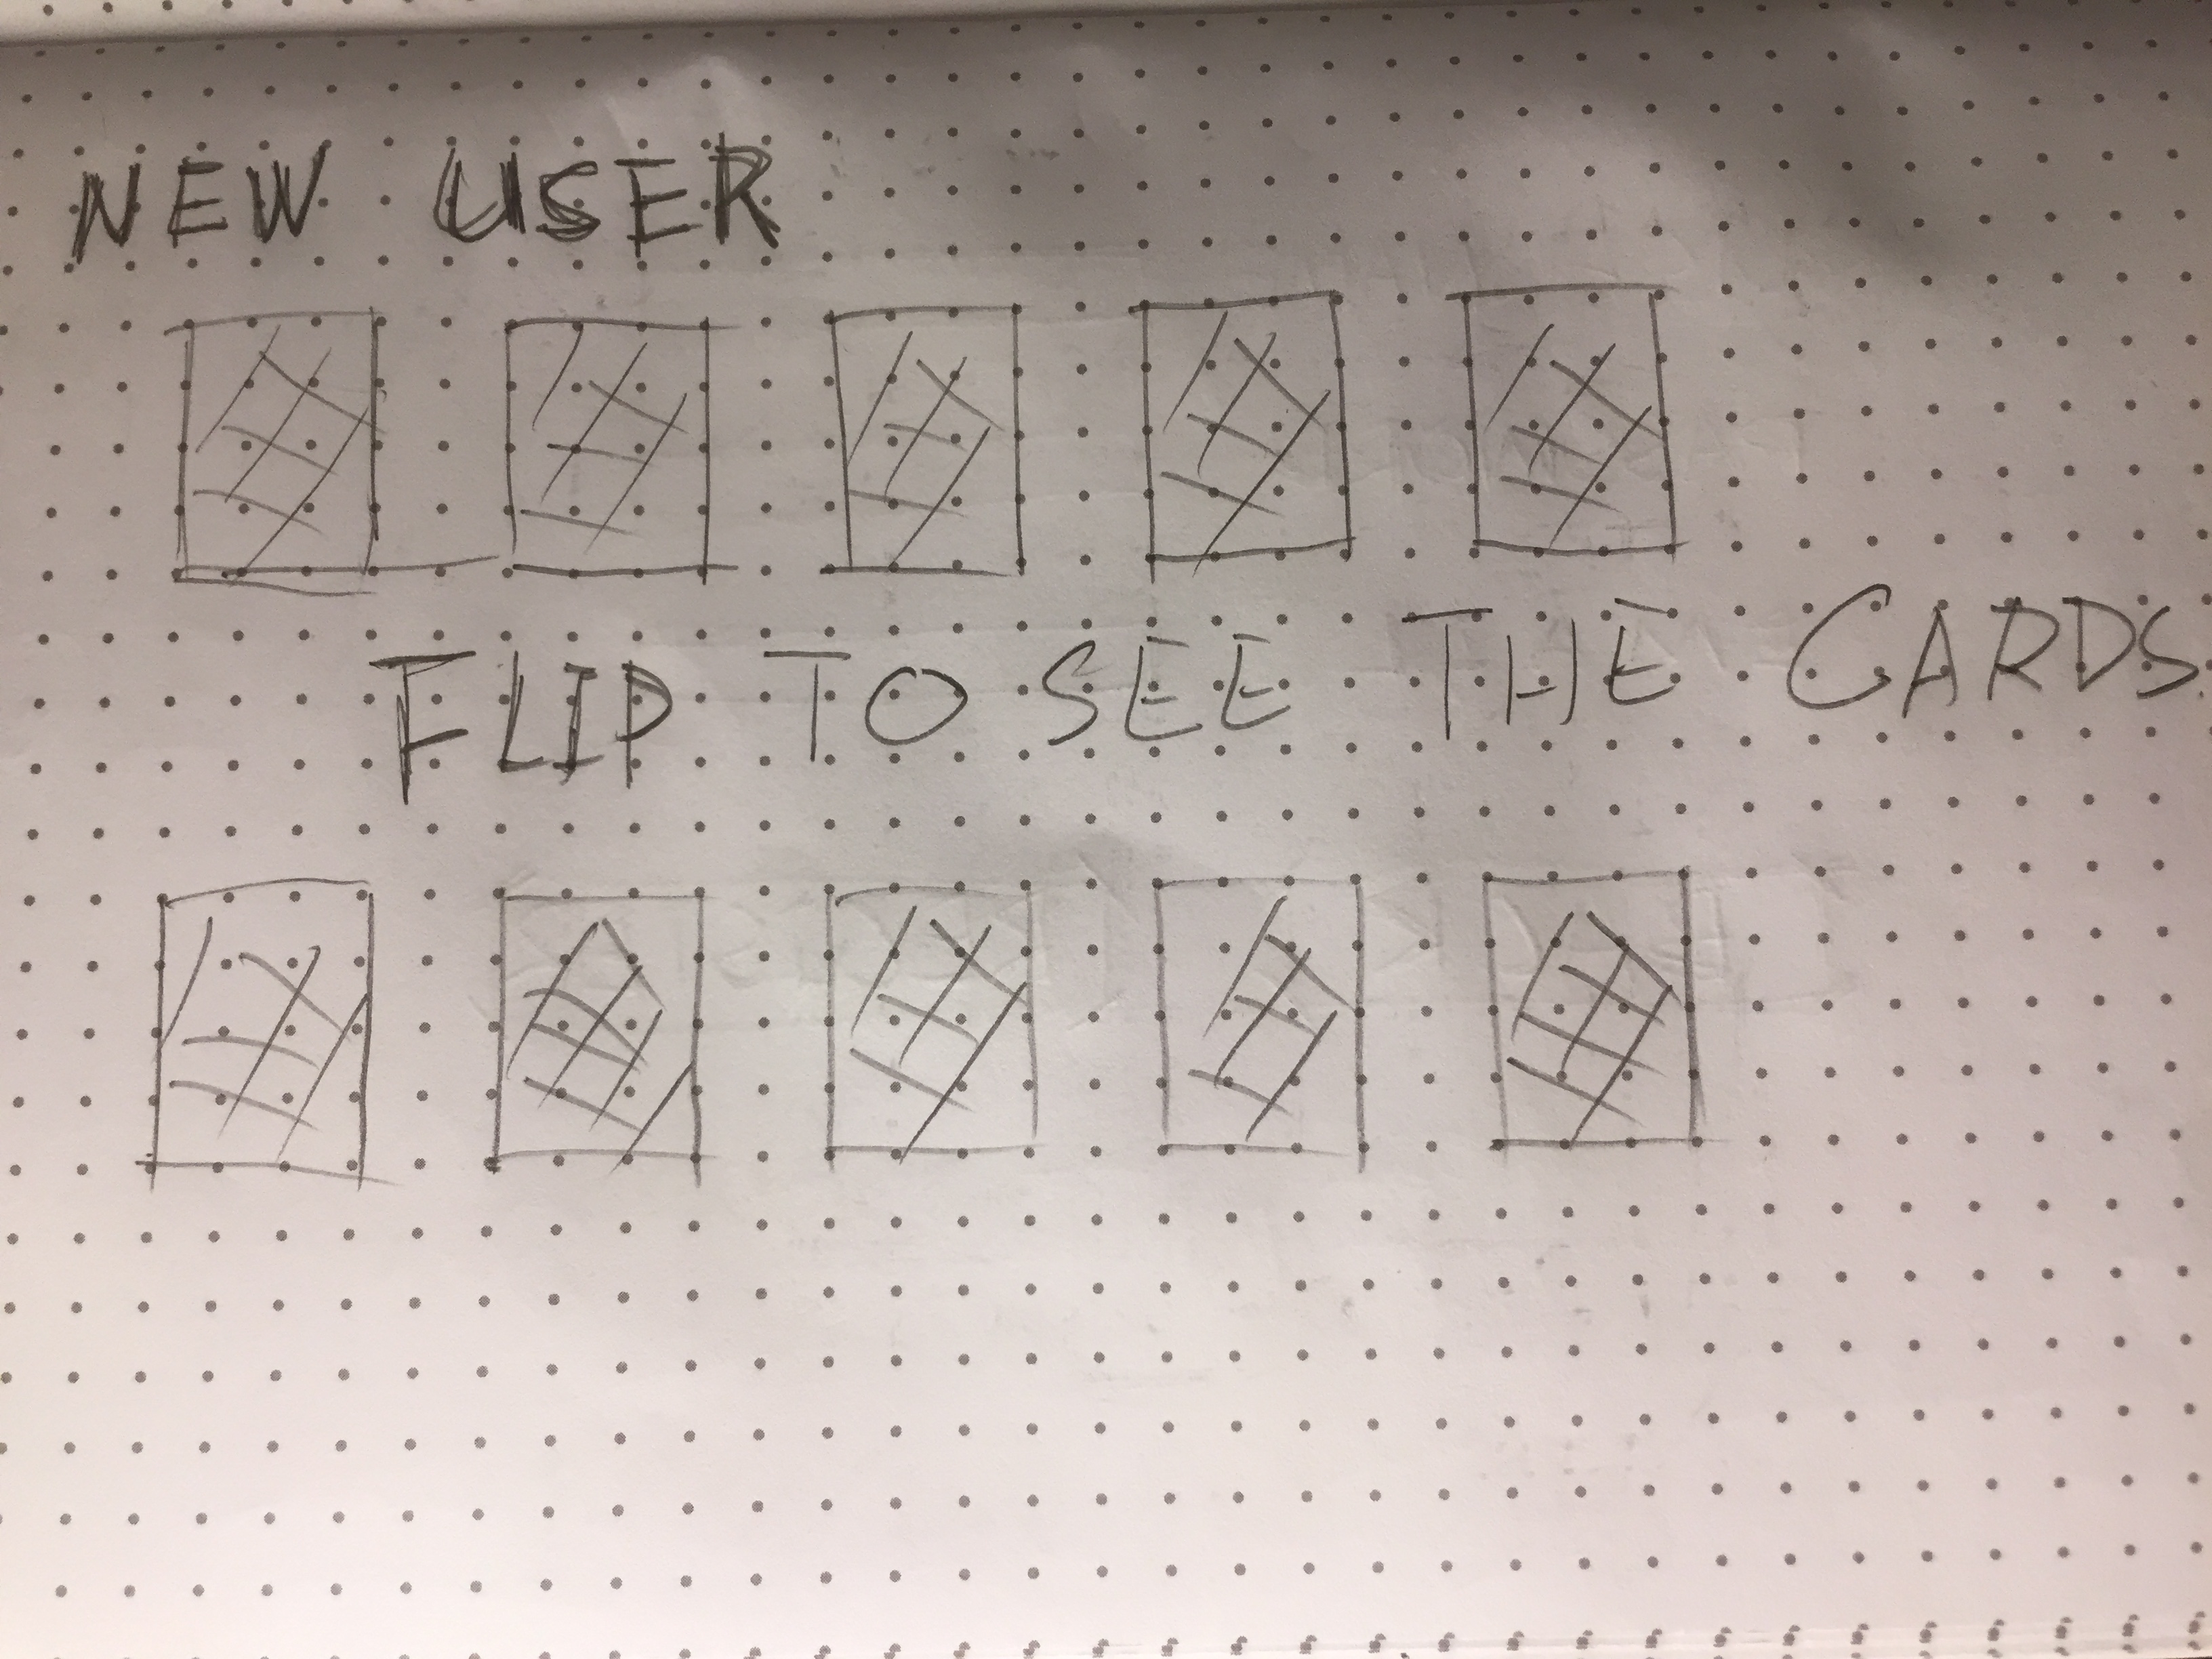 NEW USER
FLIP TO SEE THE CARDS.